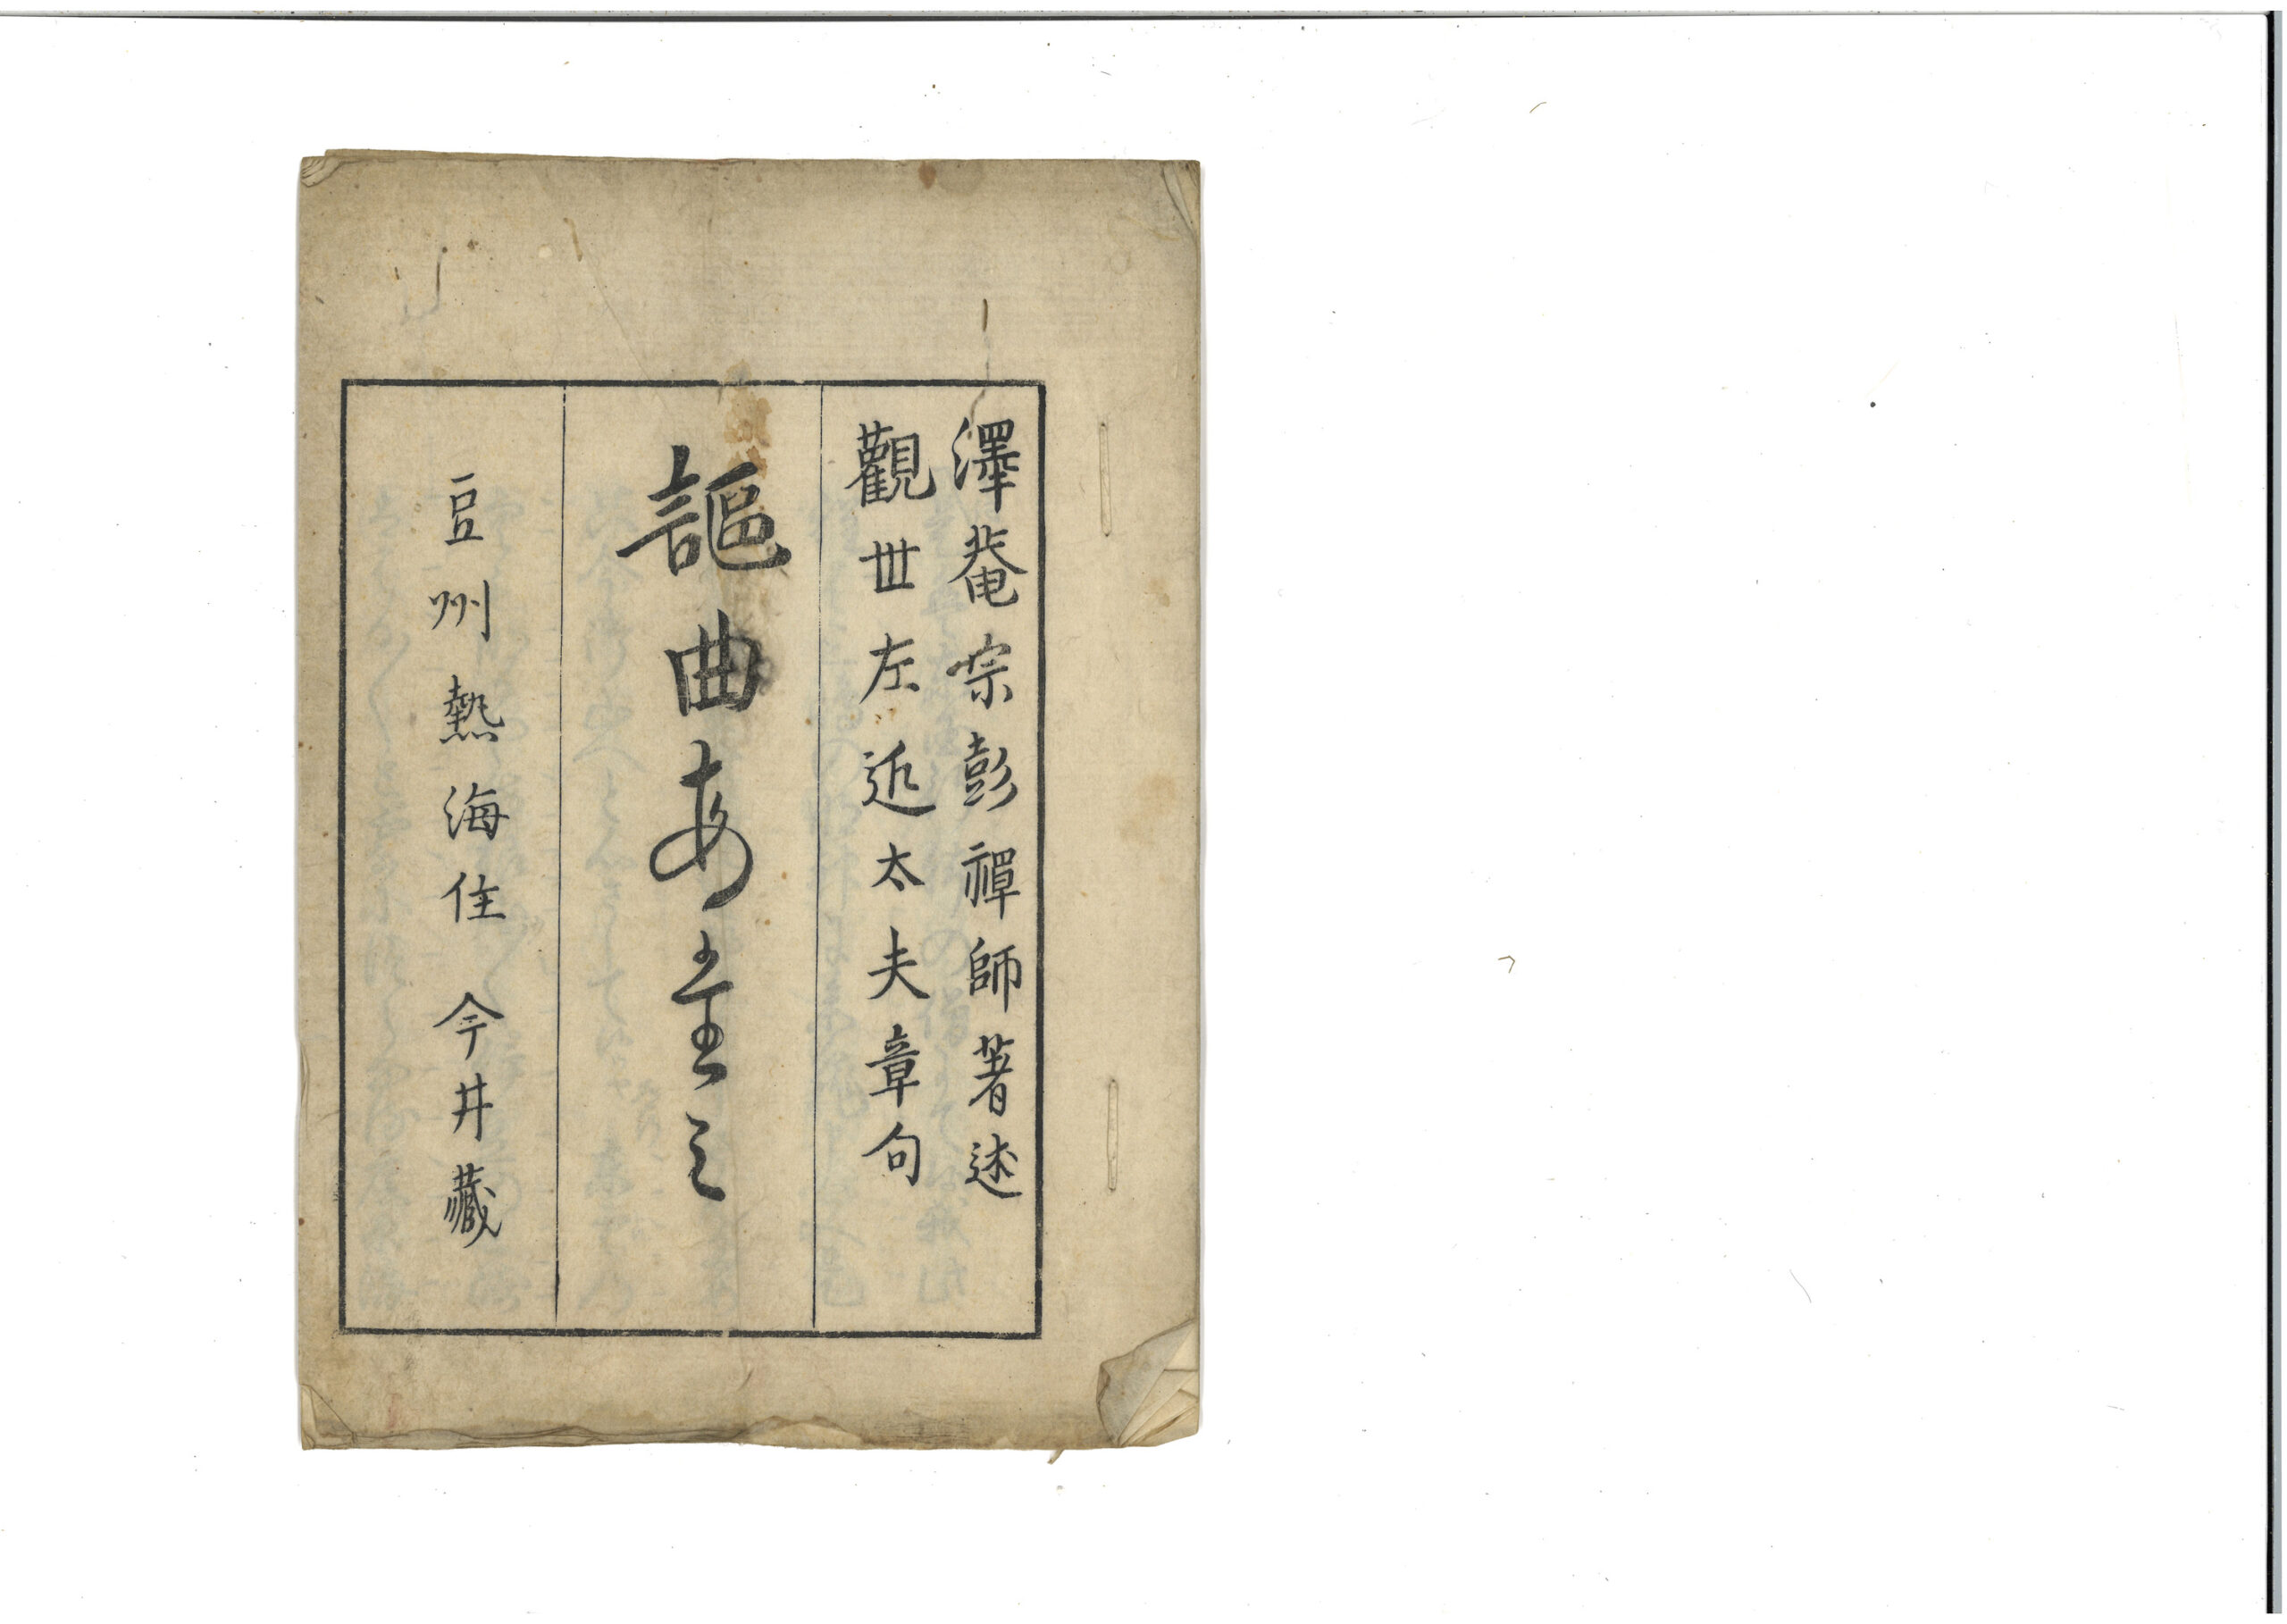 澤菴宗彭禪師著述
觀世左近太夫章句
謳曲あたみ
豆州熱海住今井藏